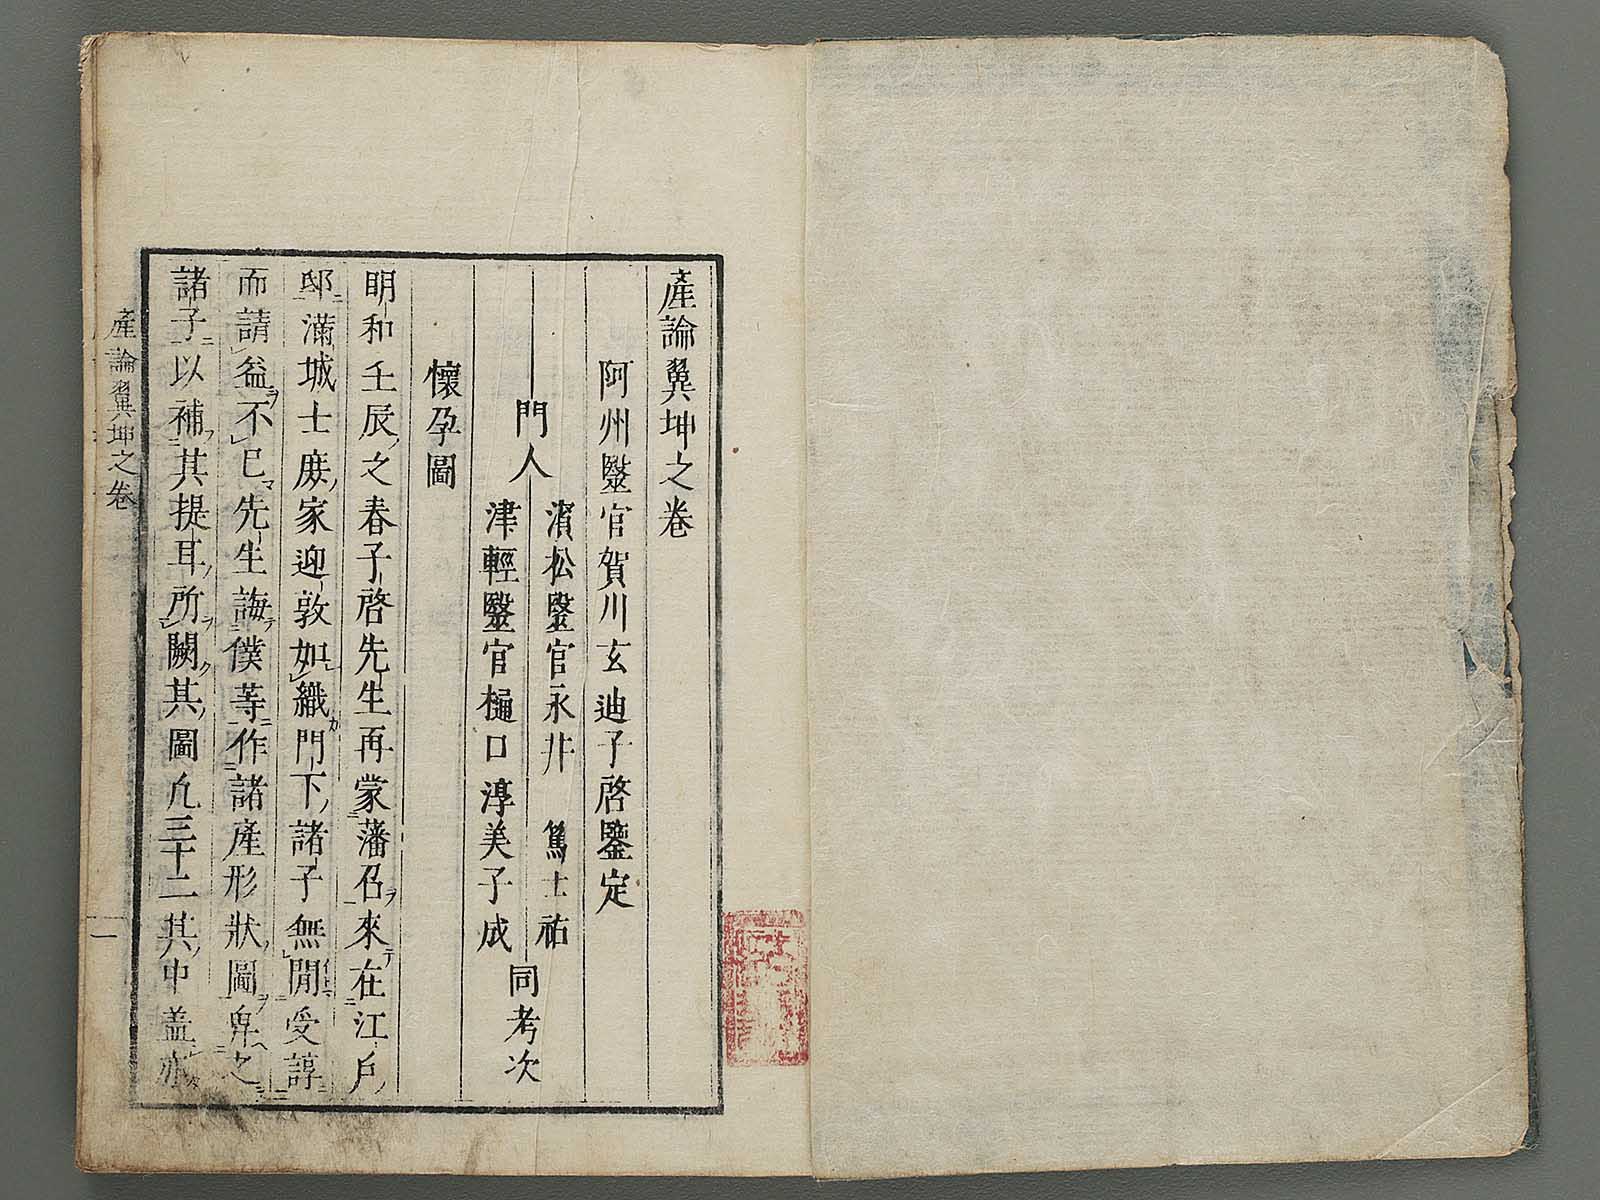 產論翼坤之卷
阿州毉官賀川玄迪子啓鑒定
門人
濱松毉官永井篤士祐
津輕毉官樋口淳美子成
同考次
懷孕圖
明和壬辰之春子啓先生再蒙藩召來在江戶
邸滿城士庶家迎敦如織門下諸子無閒受諄
而請益不已先生誨僕等作諸產形狀圖畀之
諸子以補其提耳所闕其圖凡三十二其中蓋亦
產論翼坤之卷
一